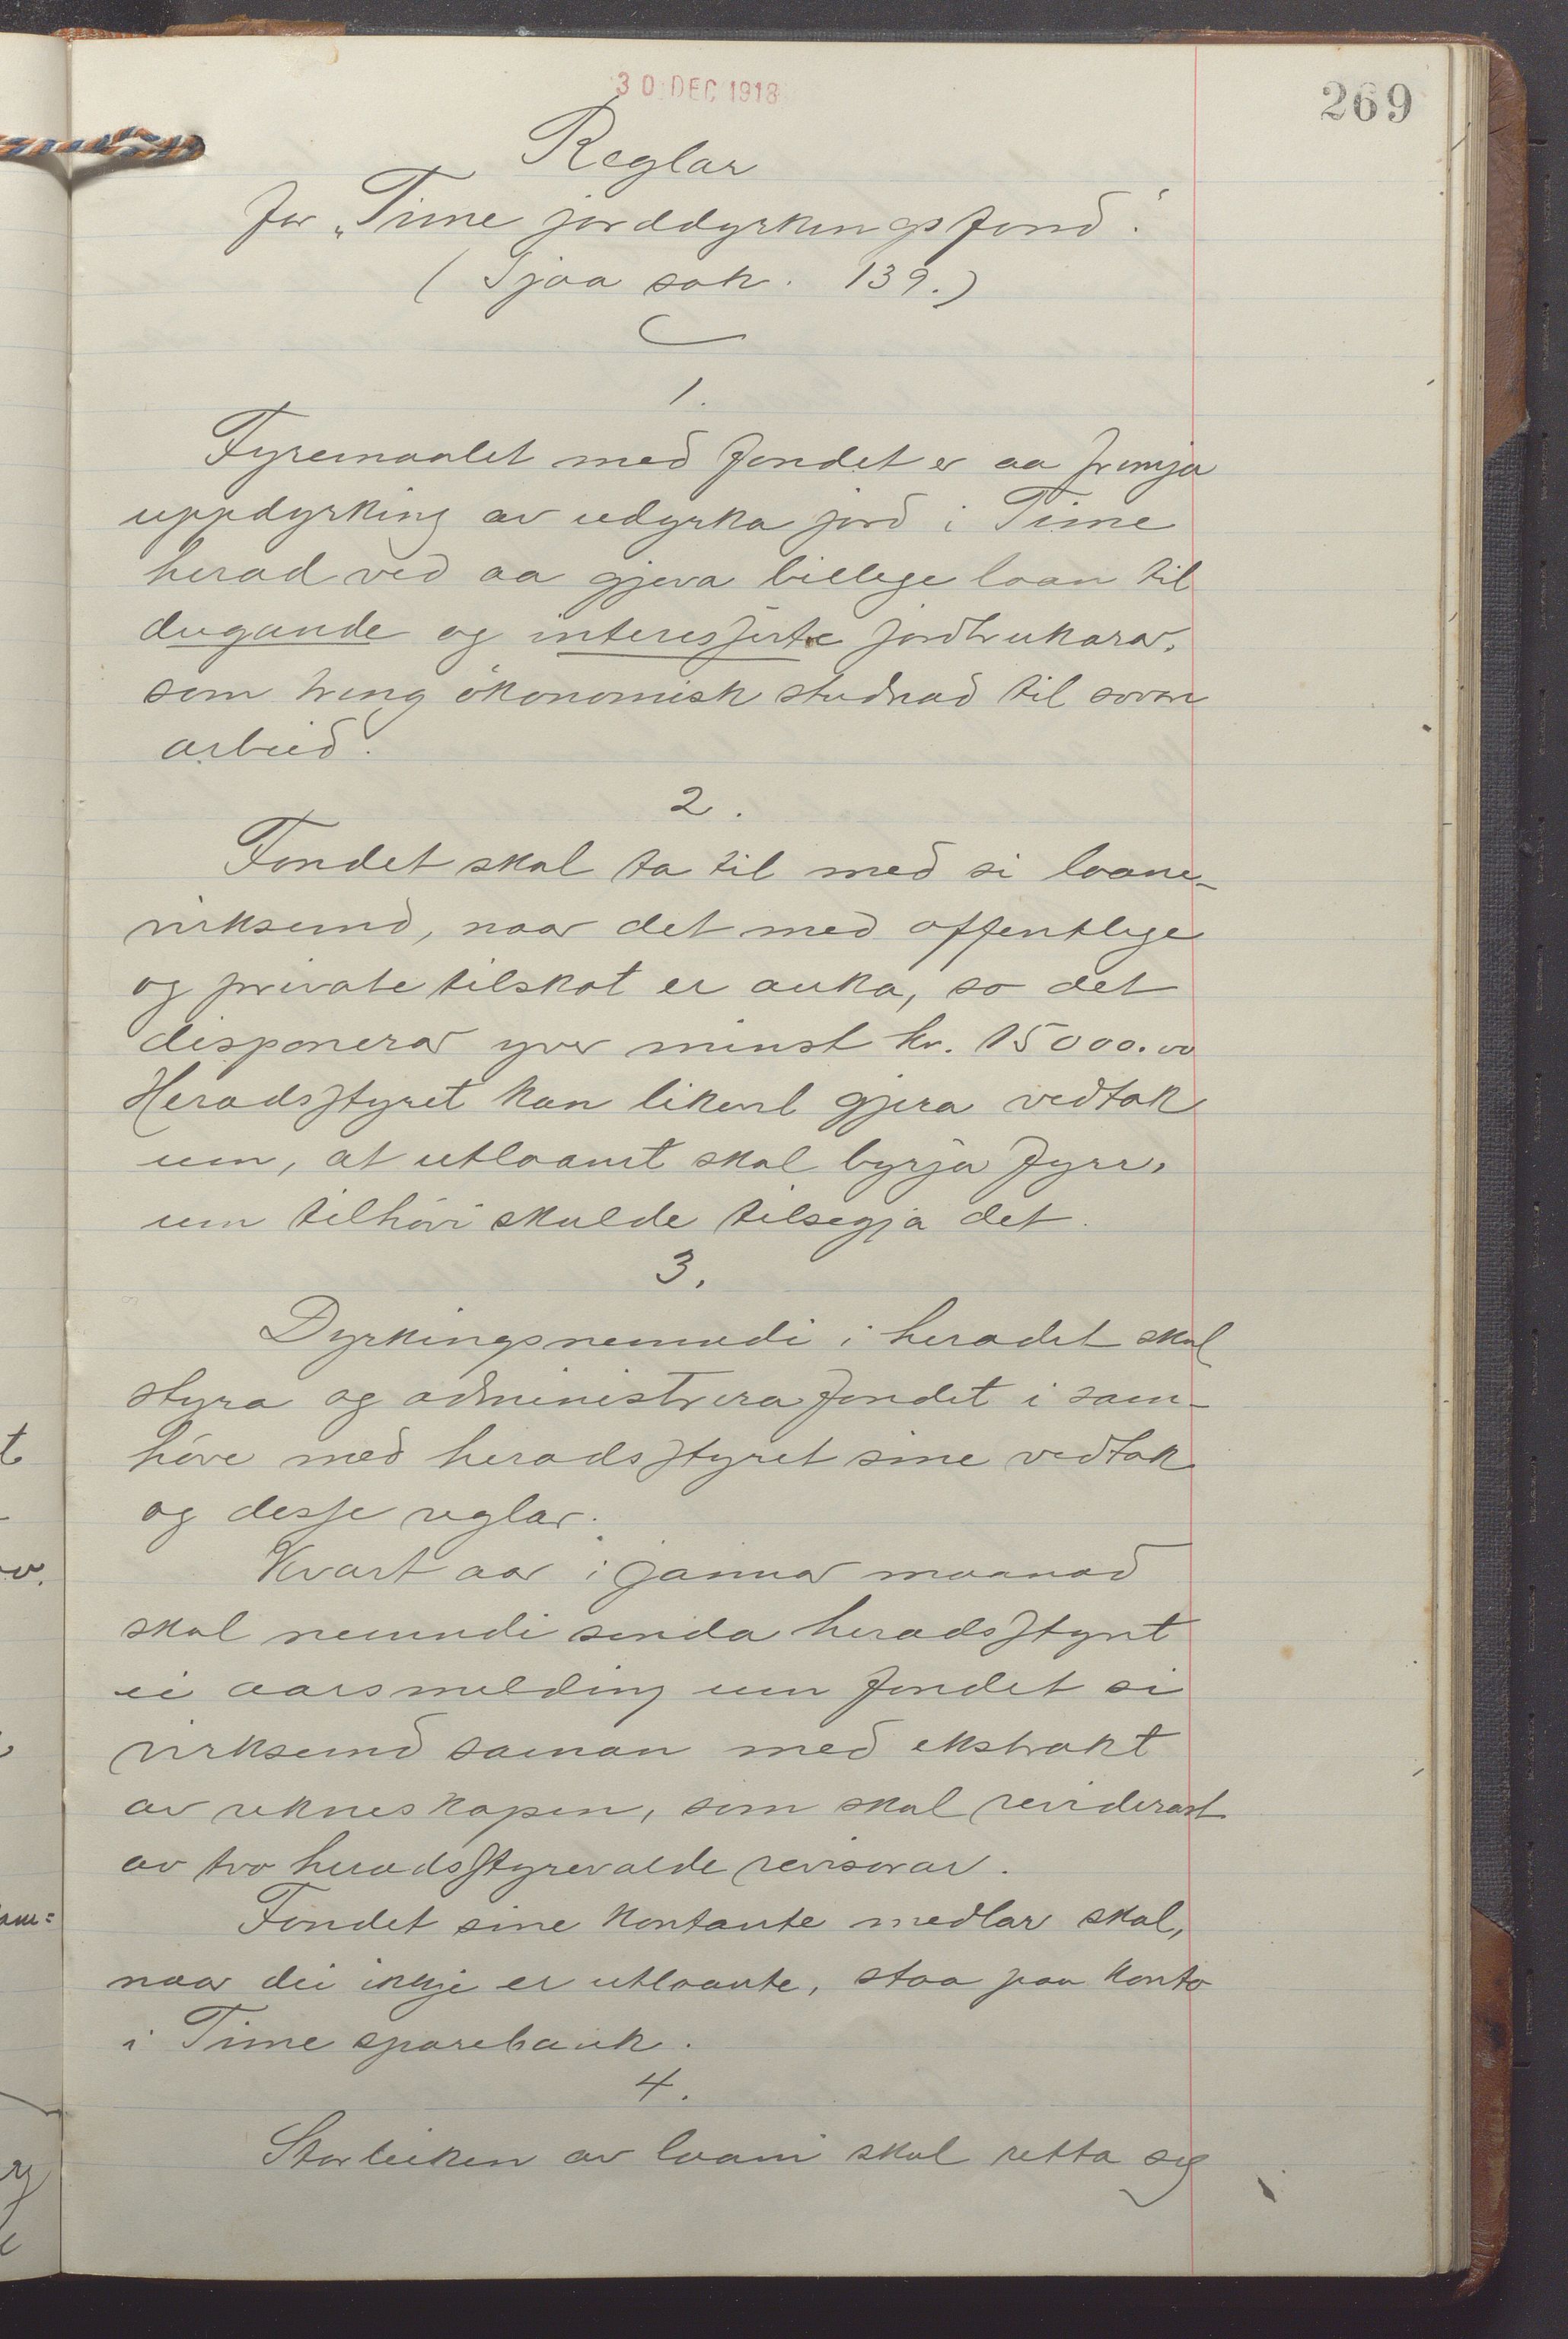 30 DEC 1918
269
Reglar
for „Time jorddyrkingsfond".
(Sjaa sak. 139.)
1.
Fyremaalet med fondet er aa fremja
uppdyrking av udyrka jord i Time
herad ved aa gjeva billege laan til
dugande og interesserte jordbrukarar,
som treng økonomisk studnad til sovore
arbeid.
2.
Fondet skal ta til med si laane-
virksemd, naar det med offentlege
og private tilskot er auka, so det
disponerar yver minst kr. 15000.00
Heradsstyret kan likevel gjera vedtak
um, at utlaanet skal byrja fyrr,
um tilhøvi skulde tilsegja det.
3.
Dyrkingsnemndi i heradet skal
styra og administrera fondet i sam-
høve med heradsstyret sine vedtak
og desse reglar.
Kvart aar i januar maanad
skal nemndi senda heradsstyret
ei aarsmelding um fondet si
virksemd saman med ekstrakt
av rekneskapen, som skal reviderast
av tvo heradsstyrevalde revisorar.
Fondet sine kontante medlar skal,
naar dei ikkje er utlaante, staa paa konto
i Time sparebank.
4.
Storleiken av laani skal retta seg